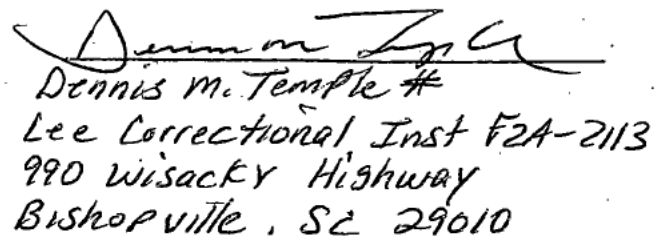 Dennis M. Temple #
Lee Correctional Inst F2A-2113
990 Wisacky Highway
Bishopville, SC 29010